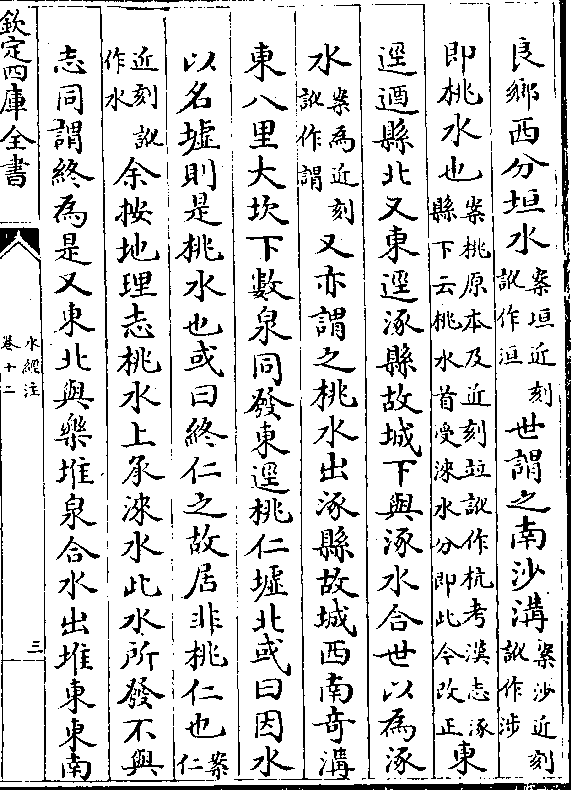 良鄉西分垣水案垣近刻訛作洹世謂之南沙溝案沙近刻訛作涉
即桃水也案桃原本及近刻竝訛作杭考漢志涿縣下云桃水首受淶水分即此今改正東
逕遒縣北又東逕涿縣故城下與涿水合世以為涿
水案為近刻訛作謂又亦謂之桃水出涿縣故城西南奇溝
東八里大坎下數泉同發東逕桃仁墟北或曰因水
以名墟則是桃水也或曰終仁之故居非桃仁也案仁
近刻訛作水余按地理志桃水上承淶水此水所發不與
志同謂終為是又東北與樂堆泉合水出堆東東南
欽定四庫全書
水經注
卷十二
三